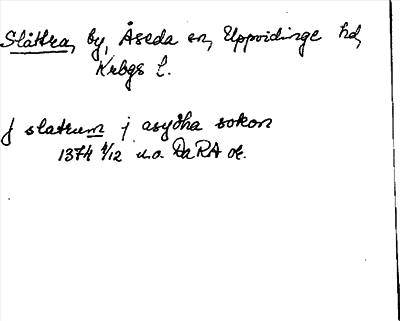 Slättra, by, Åseda sn, Uppvidinge hd,
Krbgs l.
J slatrum j asydha sokon
1374 4/12 u.a. Da RA or.